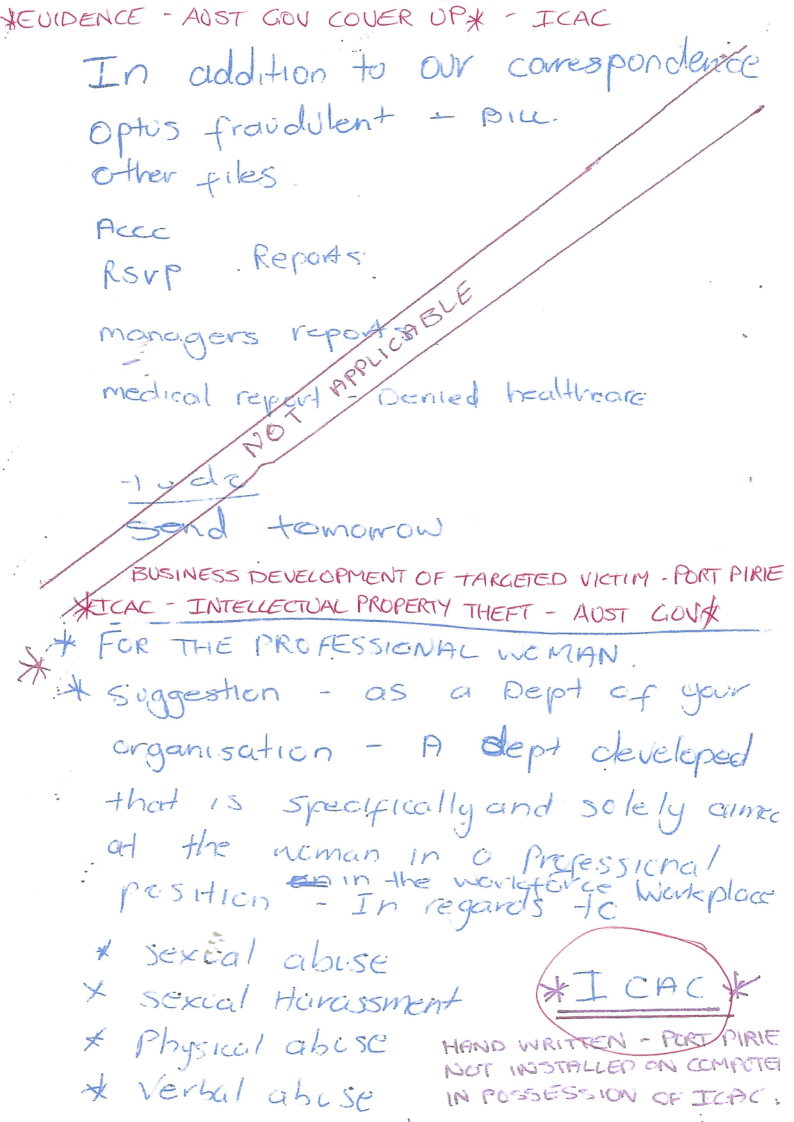 *EVIDENCE - AUST GOV COVER UP* - ICAC
In addition to our correspondence
Optus fraudulent - BILL.
other files
ACCC
RSVP . Reports
managers reports
medical report - Denied healthcare
NOT APPLICABLE
Send tomorrow
BUSINESS DEVELOPMENT OF TARGETED VICTIM - PORT PIRIE
*ICAC - INTELLECTUAL PROPERTY THEFT - AUST GOV*
* FOR THE PROFESSIONAL WOMAN.
* Suggestion - as a Dept of your
organisation - A dept developed
that is specifically and solely aimed
at the woman in a Professional
position in the workforce Workplace
- In regards to
* sexual abuse
* sexual Harassment
* Physical abuse
* Verbal abuse
*ICAC*
HAND WRITTEN - PORT PIRIE
NOT INSTALLED ON COMPUTER
IN POSSESSION OF ICAC.